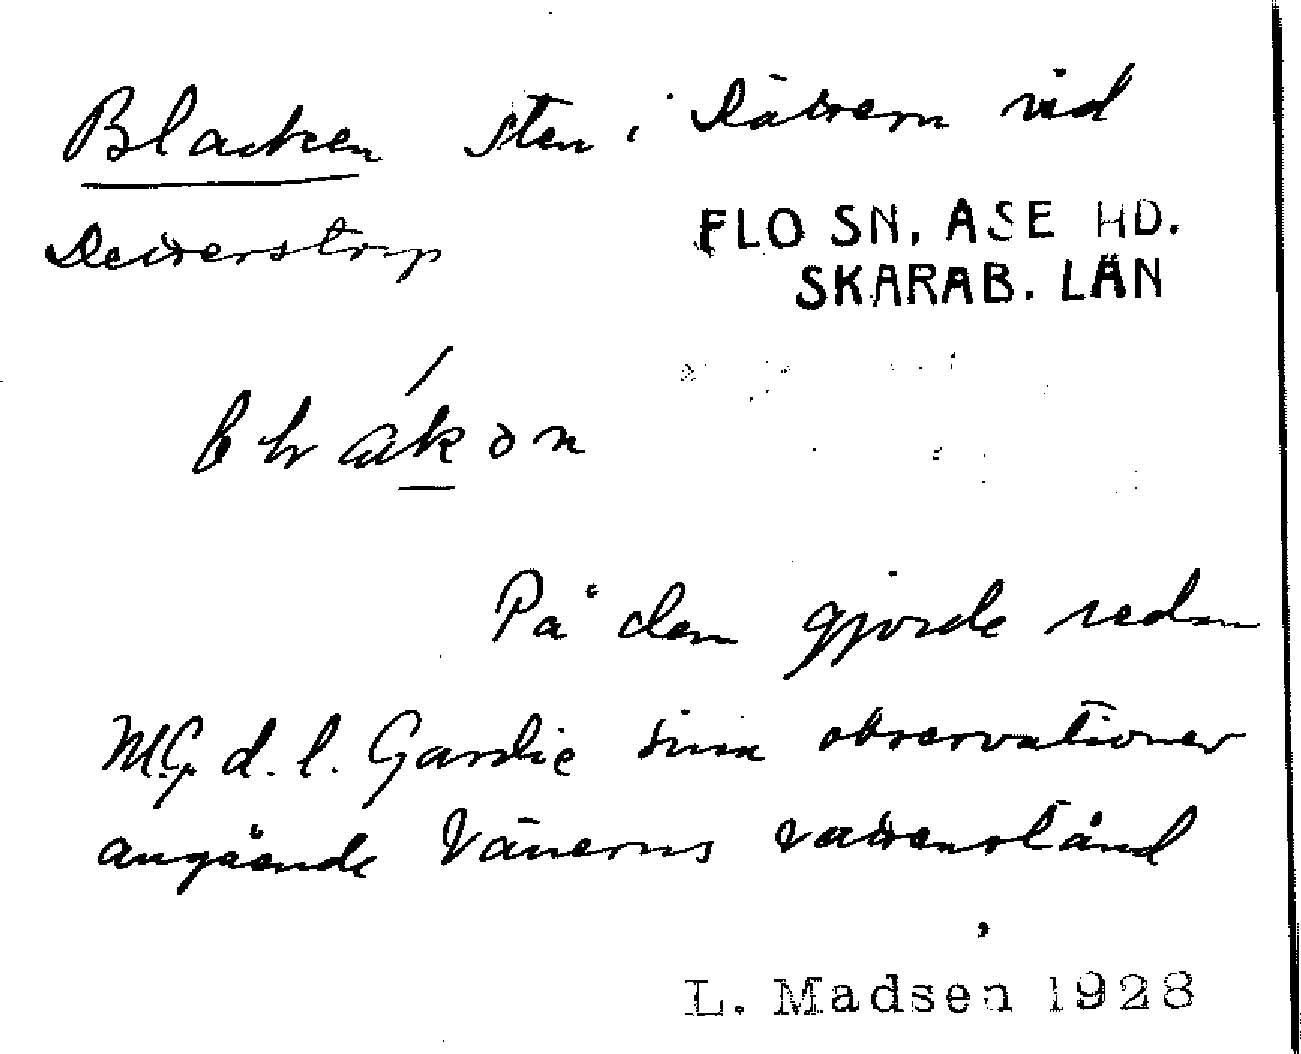 Blacken sten i Dättern vid
FLO SN. ASE HD.
SKARAB. LÄN
Detterstrup
På den gjorde redan
M.G. d. l. Gardie sina observationer
angående Vänerns vattenstånd
L. Madsen 1928